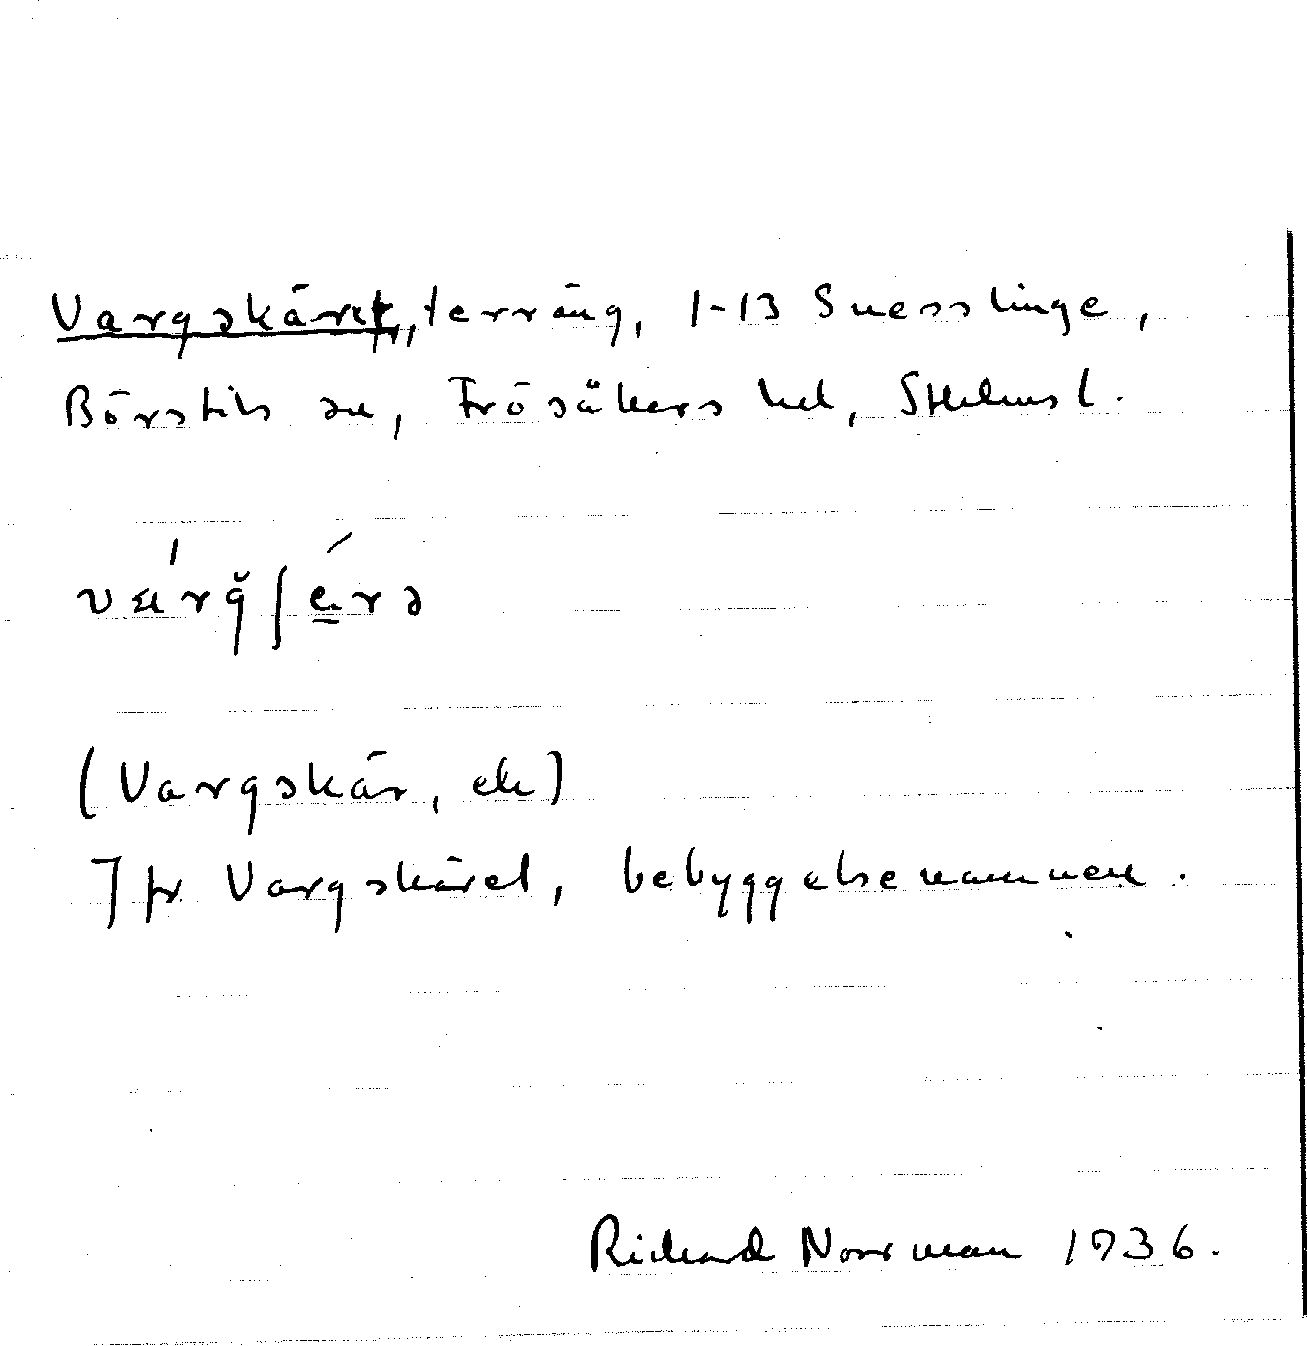 Vargskäret, terräng, 1-13 Snesslinge,
Börstils sn, Frösåkers hd, Sthlms l.
(Vargskär, ek)
Jfr Vargskäret, bebyggelsenamnen.
Richard Norrman 1936.